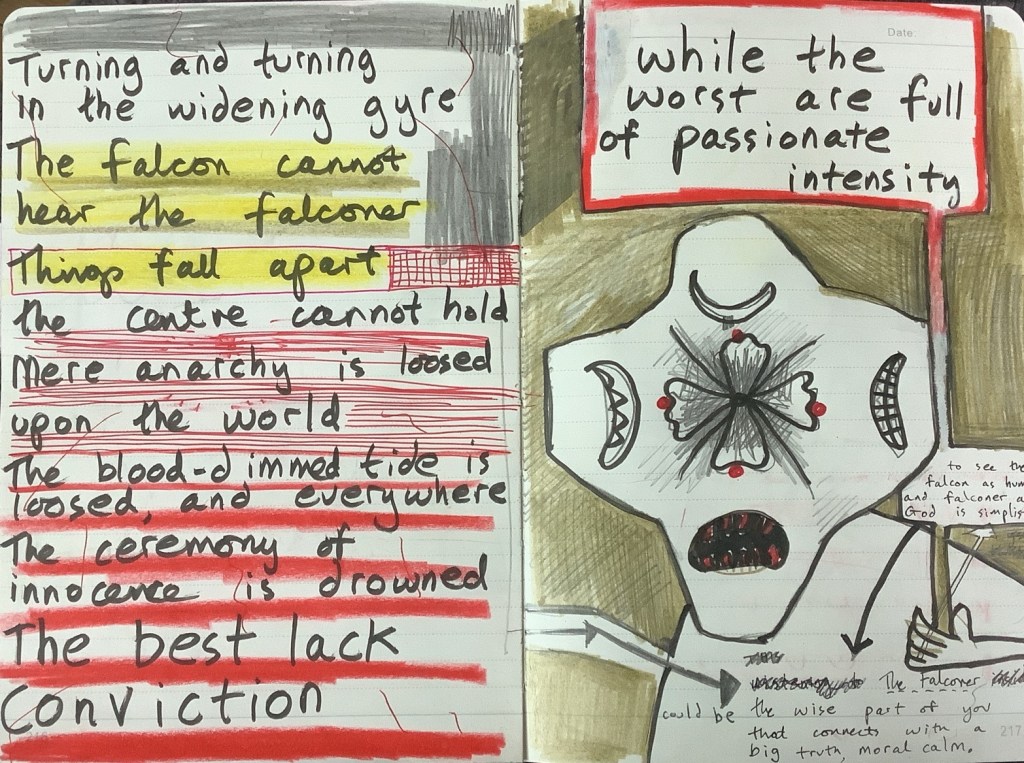 Turning and turning
in the widening gyre
The falcon cannot
hear the falconer
Things fall apart
the centre cannot hold
Mere anarchy is loosed
upon the world
The blood-dimmed tide is
loosed, and everywhere
The ceremony of
innocence is drowned
The best lack
Conviction
Date
while the
worst are full
of passionate
intensity
to see the
falcon as hum
and falconer a
God is simplis
The Falconer
could be the wise part of you
that connects with a
big truth, moral calm.
217